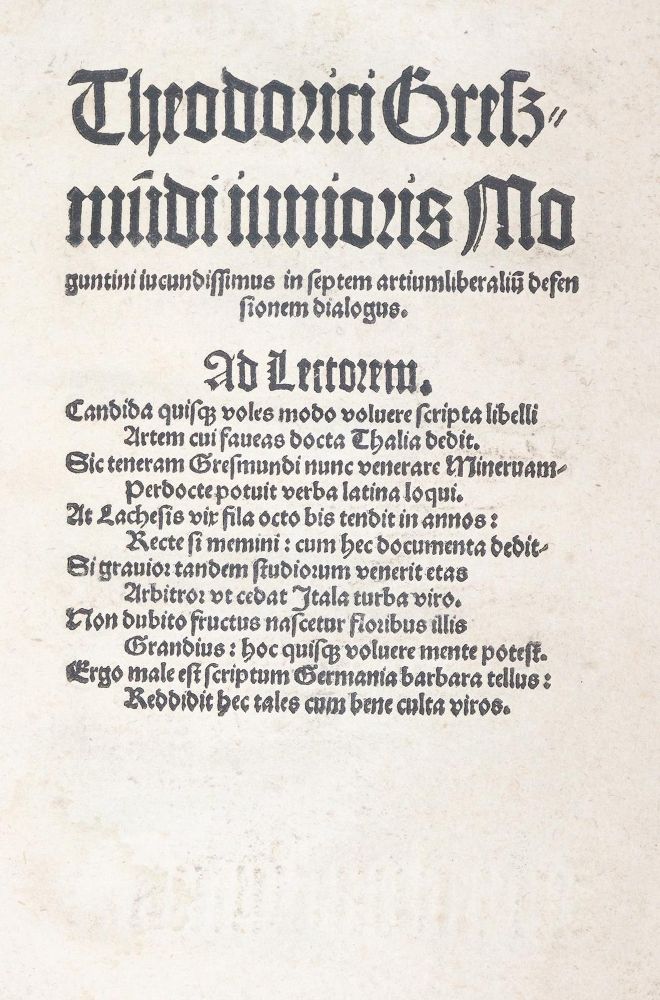 Theodorici Gresz⸗
mūdi iunioris Mo
guntini iucundissimus in septem artiumliberaliū defen
sionem dialogus.
Ad Lectorem.
Candida quisqꝫ voles modo voluere scripta libelli
Artem cui faueas docta Thalia dedit.
Sic teneram Gresmundi nunc venerare Mineruam⸗
Perdocte potuit verba latina loqui.
At Lachesis vix fila octo bis tendit in annos :
Recte si memini : cum hec documenta dedit⸗
Si grauior tandem studiorum venerit etas
Arbitror vt cedat Itala turba viro.
Non dubito fructus nascetur floribus illis
Grandius : hoc quisqꝫ voluere mente potest.
Ergo male est scriptum Germania barbara tellus :
Reddidit hec tales cum bene culta viros.